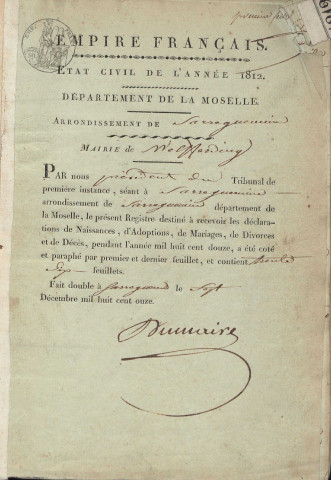 premier
EMPIRE FRANÇAIS.
ÉTAT CIVIL DE L'ANNÉE 1812.
DÉPARTEMENT DE LA MOSELLE.
ARRONDISSEMENT DE Sarreguemine
MAIRIE de Wolfferding
PAR nous président du Tribunal de
première instance, séant à Sarreguemine
arrondissement de Sarreguemine département de
la Moselle, le présent Registre destiné à recevoir les déclara-
tions de Naissances, d'Adoptions, de Mariages, de Divorces
et de Décès, pendant l'année mil huit cent douze, a été coté
et paraphé par premier et dernier feuillet, et contient
feuillets.
Fait double à le Sept
Décembre mil huit cent onze.
Dumaire